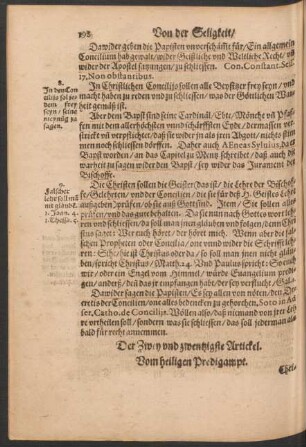 198 Von der Seligkeit/
Dawider geben die Papisten unverschämpt für/ Ein allgemein
Concilium hab gewalt/ wider Geistliche und Weltliche Recht/ und
wider der Apostel satzungen/ zu schliessen. Con. Constant. Sess.
17. Non obstantibus.
8.
In den Con-
cilijs sol je-
dem frey
seyn/ seine
meynung zu
sagen.
In Christlichen Concilijs sollen alle Beysitzer frey seyn/ und
macht haben zu reden und zu schliessen/ was der Göttlichen War-
heit gemäß ist.
Aber dem Bapst sind seine Cardinäl/ Ebte/ Mönche und Pfaf-
fen mit dem allerhöhesten und schärffsten Eyde/ dermassen ver-
strickt und verpflichtet/ daß sie wider in als jren Abgott/ nichts reden
noch schliessen dörffen. Daher auch AEneas Sylvius, da er
Bapst worden/ an das Capitel zu Mentz schreibet/ daß auch die
warheit zu sagen wider den Bapst/ sey wider das Jurament der
Bischoffe.
9.
Falscher
lehr soll man
nit glauben.
1. Joan. 4.
1. Thess. 5.
Die Christen sollen die Geister/ das ist/ die Lehre der Bischoffe
Gelehrten/ und der Concilien/ die sie für deß H. Geistes Lehr
außgeben/ prüfen/ ob sie auß Gott sind. Item/ Sie sollen alles
prüfen/ und das gute behalten. Da sie nun nach Gottes wort lehren
und schliessen/ da soll man jnen glauben und folgen/ denn Christus
saget: Wer euch höret/ der höret mich. Wenn aber die falschen
Propheten oder Concilia/ one unnd wider die Schrifft lehren:
Sihe/ hie ist Christus oder da/ so soll man jnen nicht glauben/
spricht Christus/ Matth. 24. Und Paulus spricht: So auch wir/
oder ein Engel vom Himmel/ würde Euangelium predigen/
anderß/ denn das jr empfangen habt/ der sey verflucht/ Gal. 1.
Dawider sagen die Papisten/ Es sey allen von nöten/ den De-
cretis der Concilien/ one alles bedencken zu gehorchen, Soto in As-
ser. Catho. de Concilijs. Wöllen also/ daß niemand von jrer Leh-
re urtheilen soll/ sondern was sie schliessen/ das soll jederman als-
bald für recht annemmen.
Der Zwey und zwentzigste Artickel.
Vom heiligen Predigampt.